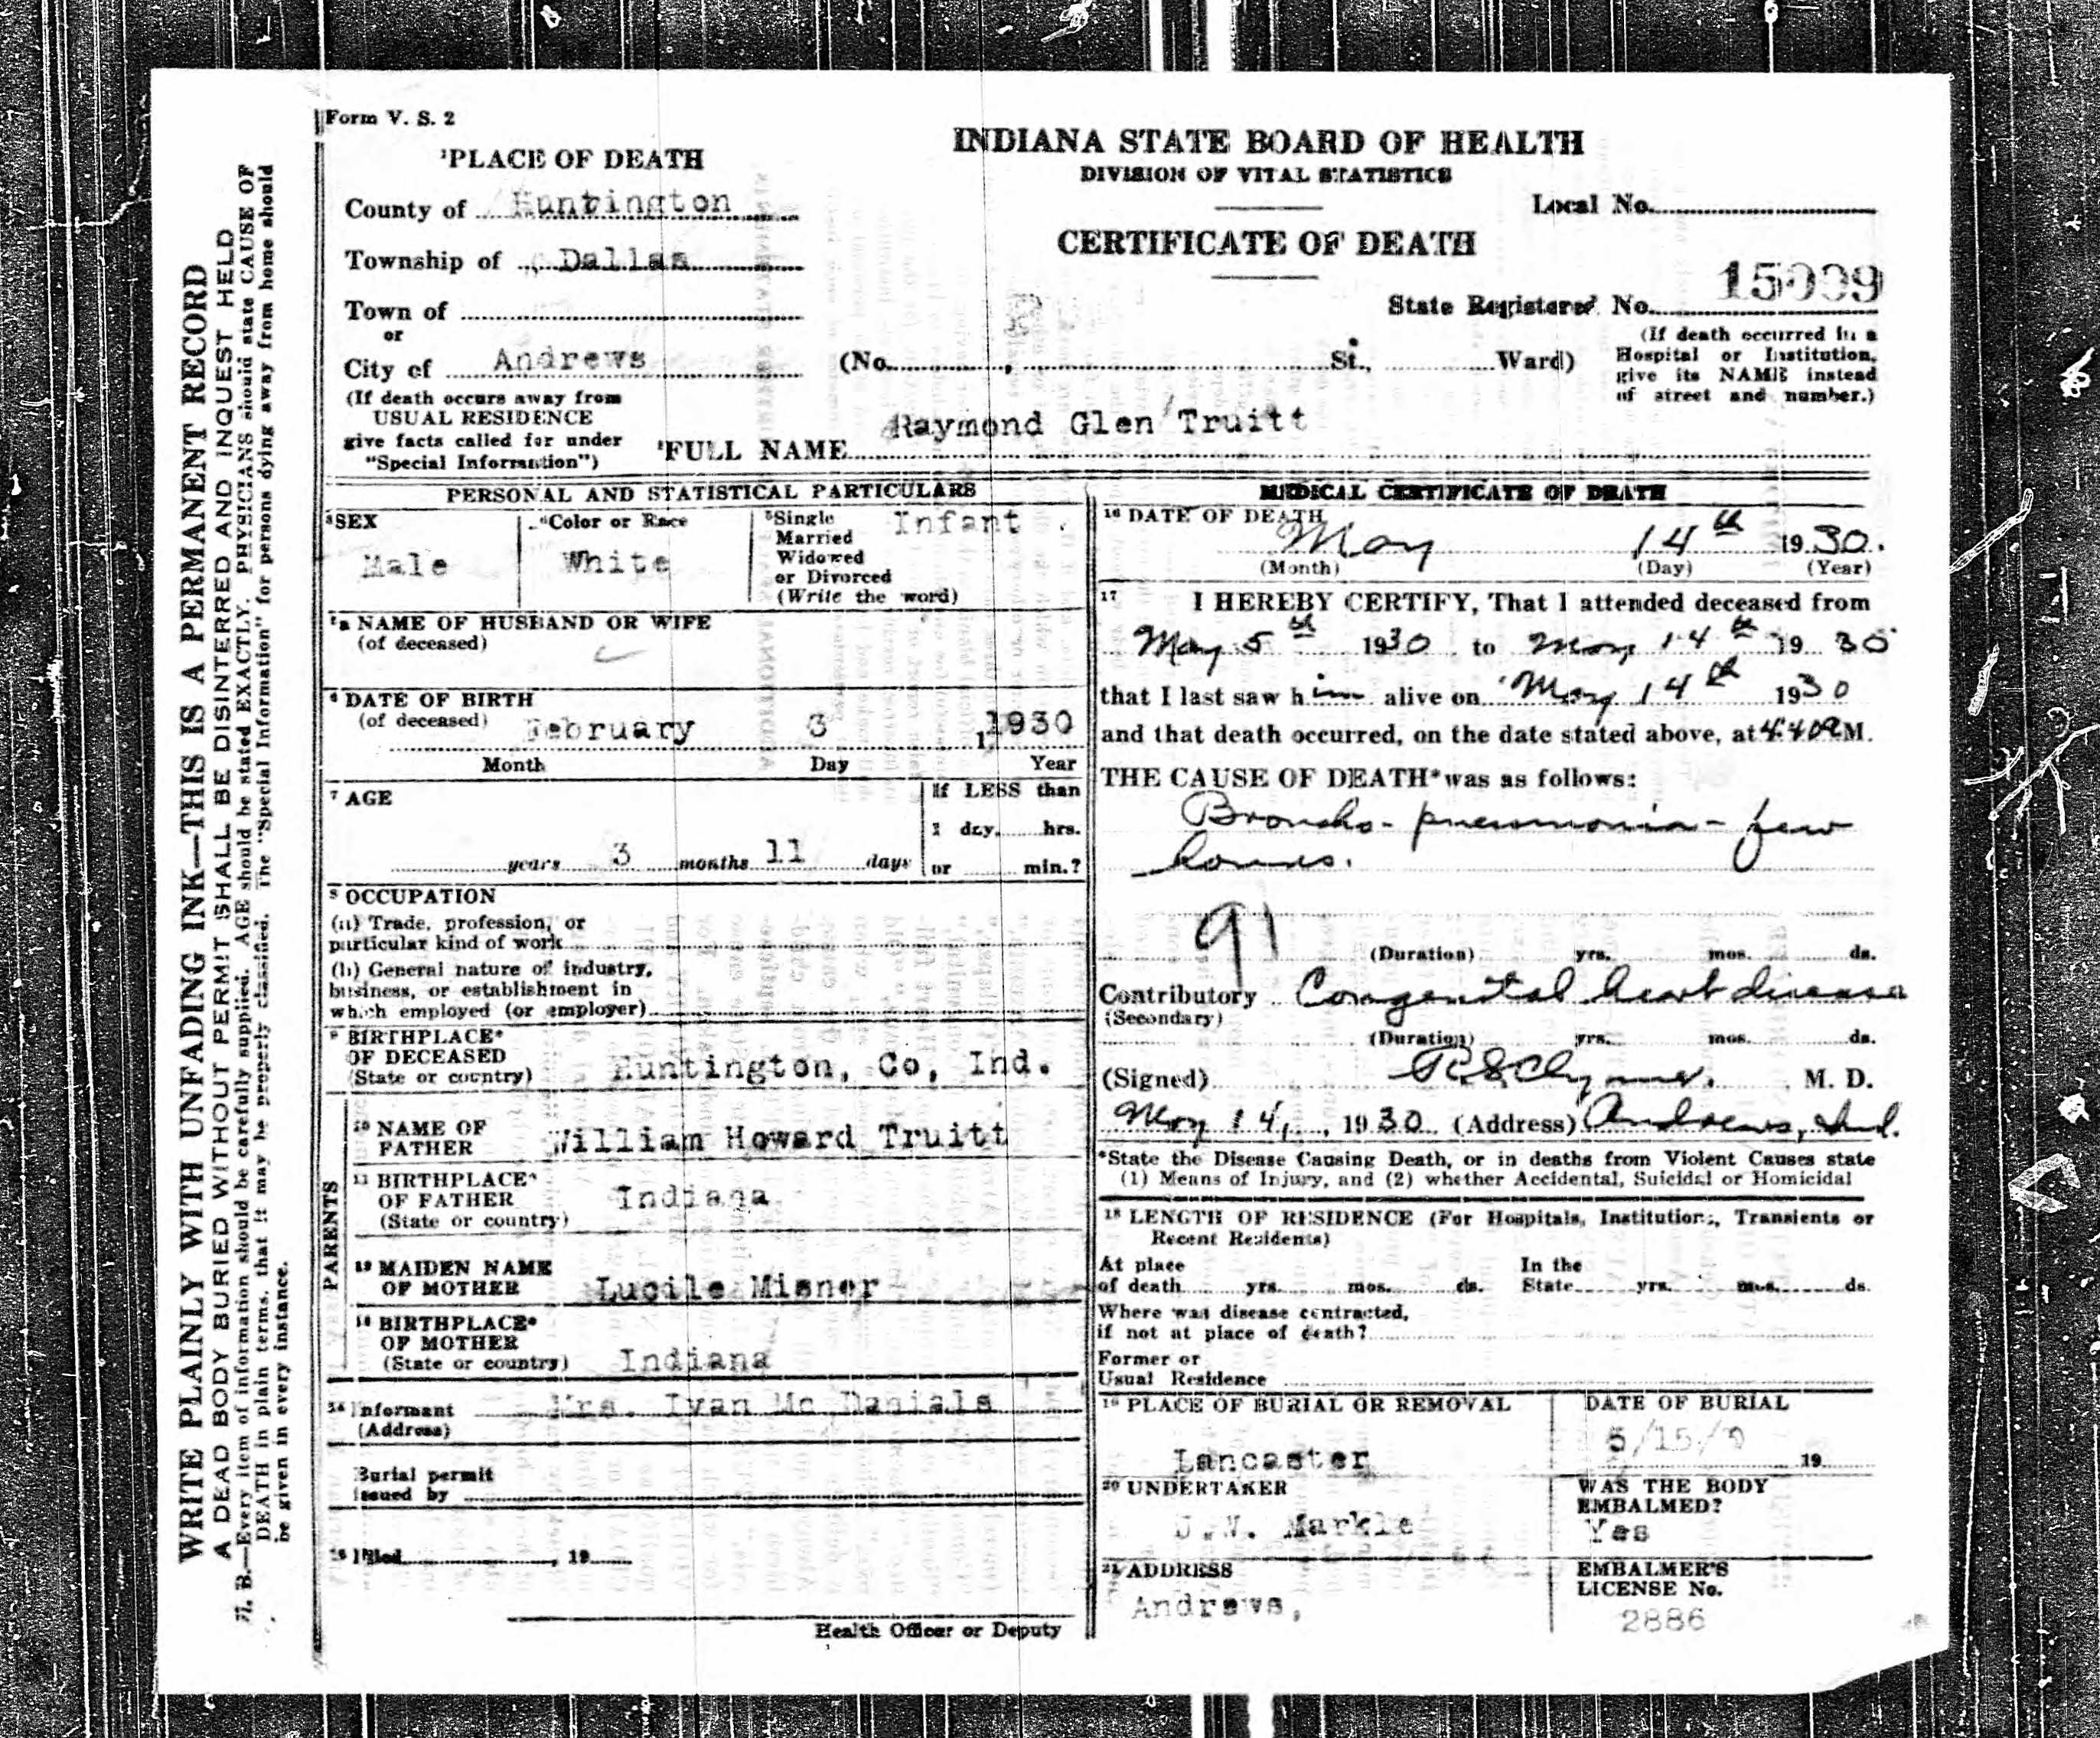 Form V. S. 2
¹PLACE OF DEATH
County of Huntington
Township of Dallas
Town of
or
City of Andrews
(If death occurs away from
USUAL RESIDENCE
give facts called for under
"Special Information")
INDIANA STATE BOARD OF HEALTH
DIVISION OF VITAL STATISTICS
CERTIFICATE OF DEATH
Local No.
State Registered No. 15009
(No. , St., Ward)
(If death occurred in a
Hospital or Institution,
give its NAME instead
of street and number.)
²FULL NAME Raymond Glen Truitt
PERSONAL AND STATISTICAL PARTICULARS
³SEX
Male
⁴Color or Race
White
⁵Single
Married
Widowed
or Divorced
(Write the word)
Infant
⁵a NAME OF HUSBAND OR WIFE
(of deceased)
⁶ DATE OF BIRTH
(of deceased) February 3 1, 1930
Month Day Year
⁷ AGE
years 3 months 11 days
If LESS than
1 day, hrs.
or min.?
⁸ OCCUPATION
(a) Trade, profession, or
particular kind of work
(b) General nature of industry,
business, or establishment in
which employed (or employer)
⁹ BIRTHPLACE*
OF DECEASED
(State or country) Huntington, Co, Ind.
PARENTS
¹⁰ NAME OF
FATHER William Howard Truitt
¹¹ BIRTHPLACE*
OF FATHER
(State or country) Indiana
¹² MAIDEN NAME
OF MOTHER Lucile Misner
¹³ BIRTHPLACE*
OF MOTHER
(State or country) Indiana
¹⁴ Informant Mrs. Ivan Mc Daniels
(Address)
Burial permit
issued by
¹⁵ Filed , 19
Health Officer or Deputy
MEDICAL CERTIFICATE OF DEATH
¹⁶ DATE OF DEATH
May 14th 1930.
(Month) (Day) (Year)
¹⁷ I HEREBY CERTIFY, That I attended deceased from
May 5th 1930 to May 14th 1930
that I last saw him alive on May 14th 1930
and that death occurred, on the date stated above, at M.
THE CAUSE OF DEATH* was as follows:
Broncho-pneumonia - few
hours.
91
(Duration) yrs. mos. ds.
Contributory Congenital heart disease
(Secondary)
(Duration) yrs. mos. ds.
(Signed) M. D.
May 14, , 1930 (Address) Andrews, Ind.
*State the Disease Causing Death, or in deaths from Violent Causes state
(1) Means of Injury, and (2) whether Accidental, Suicidal or Homicidal
¹⁸ LENGTH OF RESIDENCE (For Hospitals, Institutions, Transients or
Recent Residents)
At place
of death yrs. mos. ds.
In the
State yrs. mos. ds.
Where was disease contracted,
if not at place of death?
Former or
Usual Residence
¹⁹ PLACE OF BURIAL OR REMOVAL
Lancaster
DATE OF BURIAL
5/15/ 19
²⁰ UNDERTAKER
J.W. Markle
WAS THE BODY
EMBALMED?
Yes
²¹ ADDRESS
Andrews,
EMBALMER'S
LICENSE No.
2886
WRITE PLAINLY WITH UNFADING INK—THIS IS A PERMANENT RECORD
A DEAD BODY BURIED WITHOUT PERMIT SHALL BE DISINTERRED AND INQUEST HELD
N. B.—Every item of information should be carefully supplied. AGE should be stated EXACTLY. PHYSICIANS should state CAUSE OF
DEATH in plain terms, that it may be properly classified. The "Special Information" for persons dying away from home should
be given in every instance.